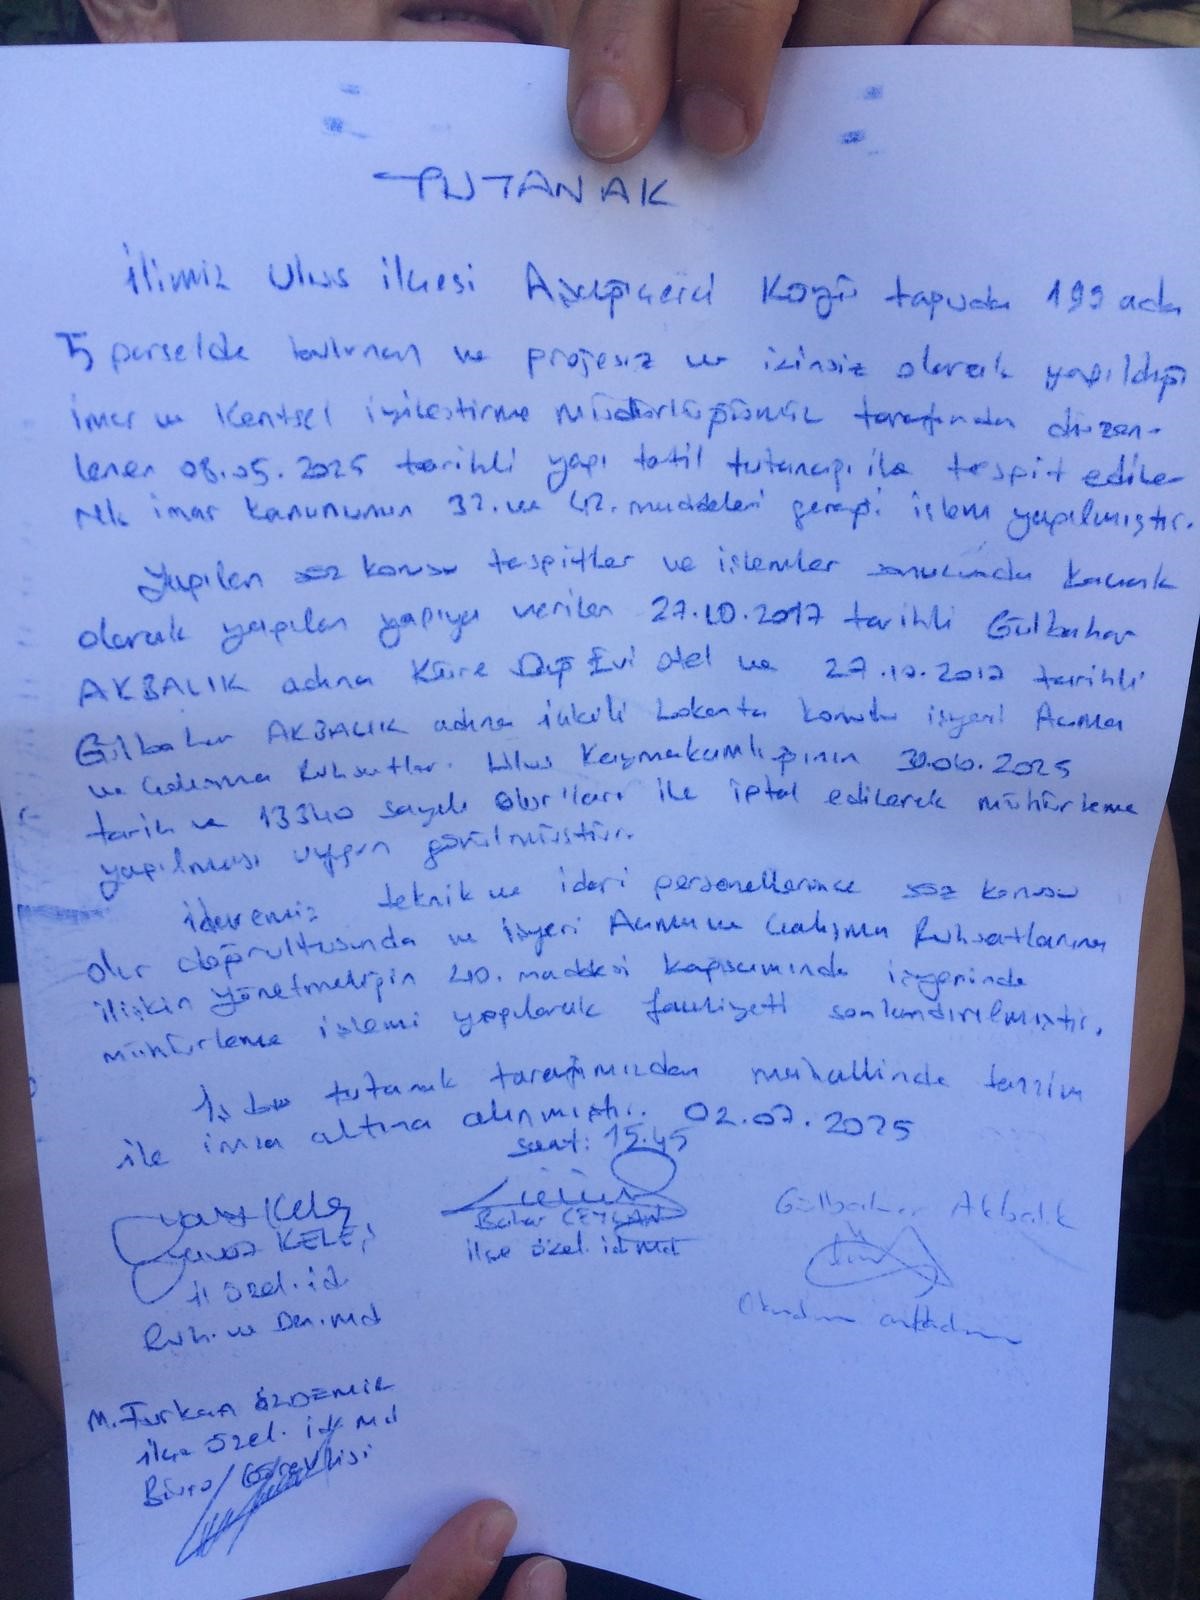 TUTANAK
İlimiz Ulus ilçesi Aşağıçerçi Köyü tapuda 199 ada
5 parselde bulunan ve projesiz ve izinsiz olarak yapıldığı
imar ve Kentsel iyileştirme müdürlüğümüz tarafından düzen-
lenen 08.05.2025 tarihli yapı tatil tutanağı ile tespit edile-
rek imar kanununun 32. ve 42. maddeleri gereği işlem yapılmıştır.
Yapılan söz konusu tespitler ve işlemler sonucunda kaçak
olarak yapılan yapıya verilen 27.10.2017 tarihli Gülbahar
AKBALIK adına Küre Dağ Evi Otel ve 27.10.2017 tarihli
Gülbahar AKBALIK adına içkili Lokanta konulu işyeri Açma
ve Çalışma Ruhsatları. Ulus Kaymakamlığının 30.06.2025
tarih ve 13340 sayılı Olur'ları ile iptal edilerek mühürleme
yapılması uygun görülmüştür.
idaremiz teknik ve idari personellerince söz konusu
olur doğrultusunda ve işyeri Açma ve Çalışma Ruhsatlarına
ilişkin yönetmeliğin 40. maddesi kapsamında işyerinde
mühürleme işlemi yapılarak faaliyeti sonlandırılmıştır.
İş bu tutanak tarafımızdan mahallinde tanzim
ile imza altına alınmıştır. 02.07.2025
saat: 15.45
Yavuz Keleş
Yavuz KELEŞ
il özel. id.
Ruh. ve Den. md
CEYLAN
ilçe özel. id md
Gülbahar Akbalık
Okudum anladım
M. Furkan ÖZDEMİR
ilçe özel. id md
Büro Görevlisi